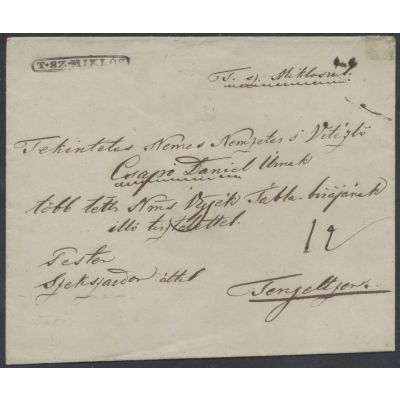 T·SZ·MIKLÓS
T. sz. Miklosrul.
Tekintetes Nemes Nemzetes s Vitézlő
Csapo Daniel Úrnak
több tettes Nms Vgyék Tábla-birájának
illő tisztelettel.
12
Pesten
Szekszardon által
Tengeltzen.